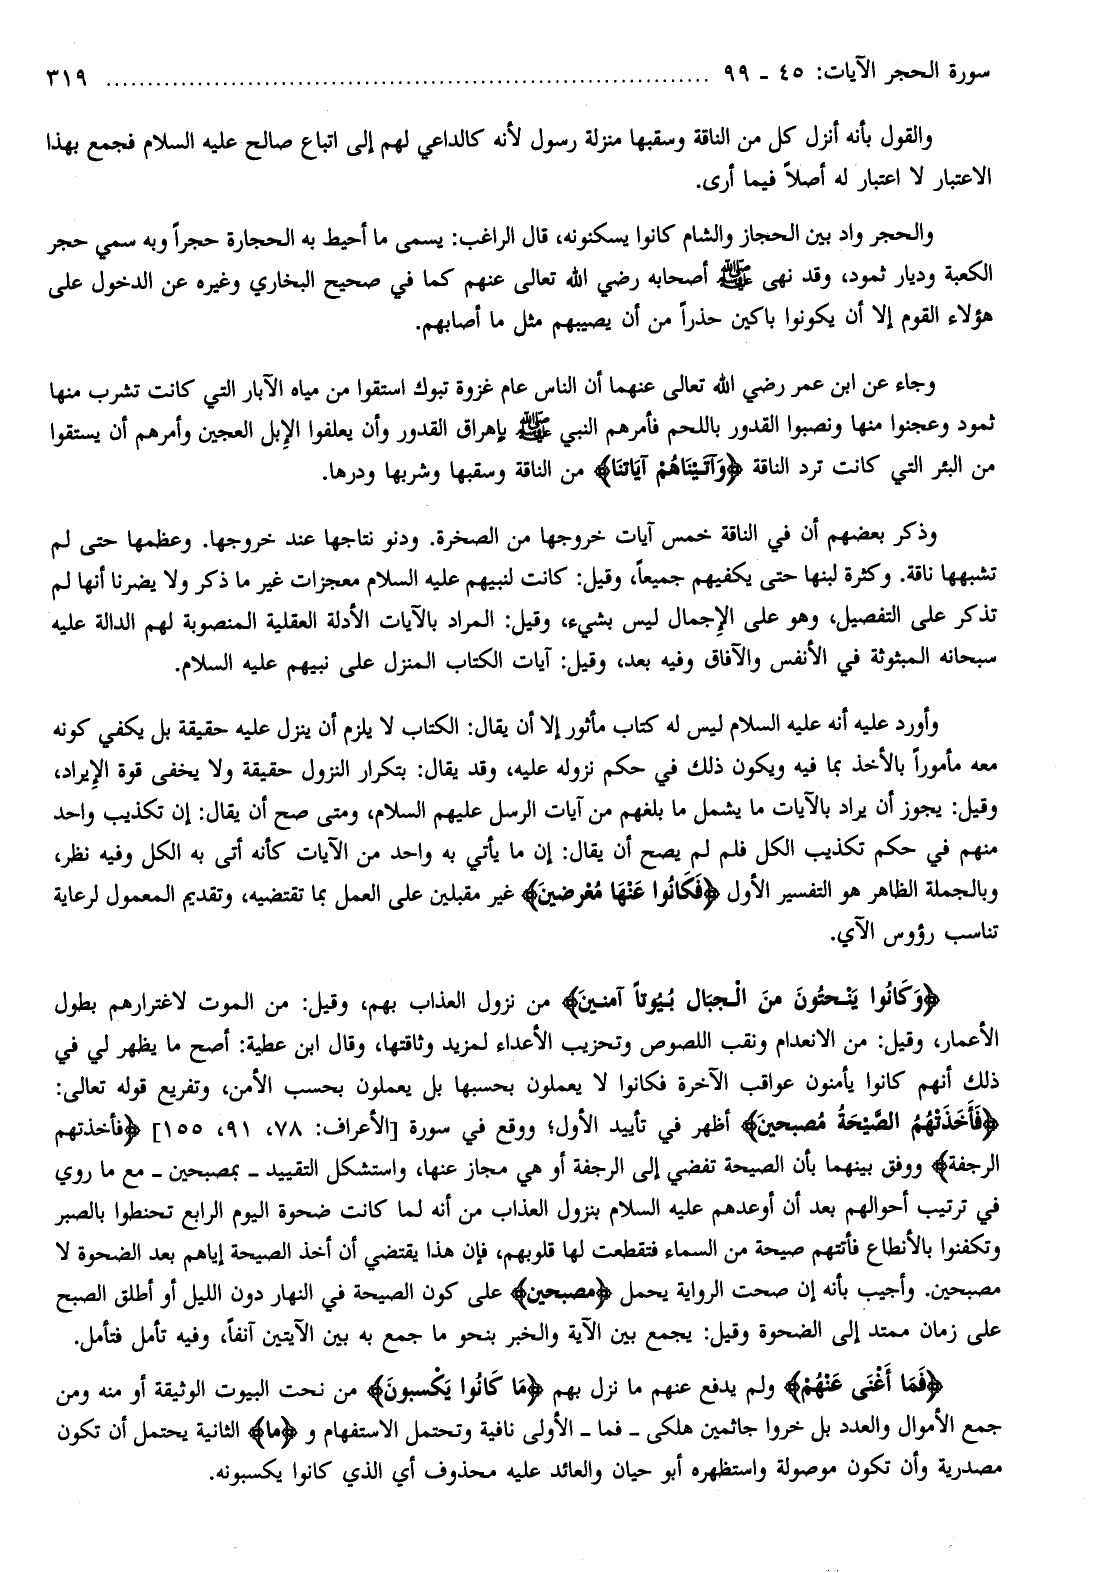 سورة الحجر الآيات: ٤٥ ـ ٩٩ ........................................................................ ٣١٩
والقول بأنه أنزل كل من الناقة وسقبها منزلة رسول لأنه كالداعي لهم إلى اتباع صالح عليه السلام فجمع بهذا
الاعتبار لا اعتبار له أصلاً فيما أرى.
والحجر واد بين الحجاز والشام كانوا يسكنونه، قال الراغب: يسمى ما أحيط به الحجارة حجراً وبه سمي حجر
الكعبة وديار ثمود، وقد نهى ﷺ أصحابه رضي الله تعالى عنهم كما في صحيح البخاري وغيره عن الدخول على
هؤلاء القوم إلا أن يكونوا باكين حذراً من أن يصيبهم مثل ما أصابهم.
وجاء عن ابن عمر رضي الله تعالى عنهما أن الناس عام غزوة تبوك استقوا من مياه الآبار التي كانت تشرب منها
ثمود وعجنوا منها ونصبوا القدور باللحم فأمرهم النبي ﷺ بإهراق القدور وأن يعلفوا الإبل العجين وأمرهم أن يستقوا
من البئر التي كانت ترد الناقة ﴿وَآتَيْنَاهُمْ آيَاتنَا﴾ من الناقة وسقبها وشربها ودرها.
وذكر بعضهم أن في الناقة خمس آيات خروجها من الصخرة. ودنو نتاجها عند خروجها. وعظمها حتى لم
تشبهها ناقة. وكثرة لبنها حتى يكفيهم جميعاً، وقيل: كانت لنبيهم عليه السلام معجزات غير ما ذكر ولا يضرنا أنها لم
تذكر على التفصيل، وهو على الإجمال ليس بشيء، وقيل: المراد بالآيات الأدلة العقلية المنصوبة لهم الدالة عليه
سبحانه المبثوثة في الأنفس والآفاق وفيه بعد، وقيل: آيات الكتاب المنزل على نبيهم عليه السلام.
وأورد عليه أنه عليه السلام ليس له كتاب مأثور إلا أن يقال: الكتاب لا يلزم أن ينزل عليه حقيقة بل يكفي كونه
معه مأموراً بالأخذ بما فيه ويكون ذلك في حكم نزوله عليه، وقد يقال: بتكرار النزول حقيقة ولا يخفى قوة الإيراد،
وقيل: يجوز أن يراد بالآيات ما يشمل ما بلغهم من آيات الرسل عليهم السلام، ومتى صح أن يقال: إن تكذيب واحد
منهم في حكم تكذيب الكل فلم لم يصح أن يقال: إن ما يأتي به واحد من الآيات كأنه أتى به الكل وفيه نظر،
وبالجملة الظاهر هو التفسير الأول ﴿فَكَانُوا عَنْهَا مُعْرضينَ﴾ غير مقبلين على العمل بما تقتضيه، وتقديم المعمول لرعاية
تناسب رؤوس الآي.
﴿وَكَانُوا يَنْحتُونَ منَ الْجبَال بُيُوتاً آمنينَ﴾ من نزول العذاب بهم، وقيل: من الموت لاغترارهم بطول
الأعمار، وقيل: من الانعدام ونقب اللصوص وتحزيب الأعداء لمزيد وثاقتها، وقال ابن عطية: أصح ما يظهر لي في
ذلك أنهم كانوا يأمنون عواقب الآخرة فكانوا لا يعملون بحسبها بل يعملون بحسب الأمن، وتفريع قوله تعالى:
﴿فَأَخَذَتْهُمُ الصَّيْحَةُ مُصبحينَ﴾ أظهر في تأييد الأول؛ ووقع في سورة [الأعراف: ٧٨، ٩١، ١٥٥] ﴿فأخذتهم
الرجفة﴾ ووفق بينهما بأن الصيحة تفضي إلى الرجفة أو هي مجاز عنها، واستشكل التقييد ـ بمصبحين ـ مع ما روي
في ترتيب أحوالهم بعد أن أوعدهم عليه السلام بنزول العذاب من أنه لما كانت ضحوة اليوم الرابع تحنطوا بالصبر
وتكفنوا بالأنطاع فأتتهم صيحة من السماء فتقطعت لها قلوبهم، فإن هذا يقتضي أن أخذ الصيحة إياهم بعد الضحوة لا
مصبحين. وأجيب بأنه إن صحت الرواية يحمل ﴿مصبحين﴾ على كون الصيحة في النهار دون الليل أو أطلق الصبح
على زمان ممتد إلى الضحوة وقيل: يجمع بين الآية والخبر بنحو ما جمع به بين الآيتين آنفاً، وفيه تأمل فتأمل.
﴿فَمَا أَغْنَى عَنْهُمْ﴾ ولم يدفع عنهم ما نزل بهم ﴿مَا كَانُوا يَكْسبونَ﴾ من نحت البيوت الوثيقة أو منه ومن
جمع الأموال والعدد بل خروا جاثمين هلكى ـ فما ـ الأولى نافية وتحتمل الاستفهام و ﴿ما﴾ الثانية يحتمل أن تكون
مصدرية وأن تكون موصولة واستظهره أبو حيان والعائد عليه محذوف أي الذي كانوا يكسبونه.